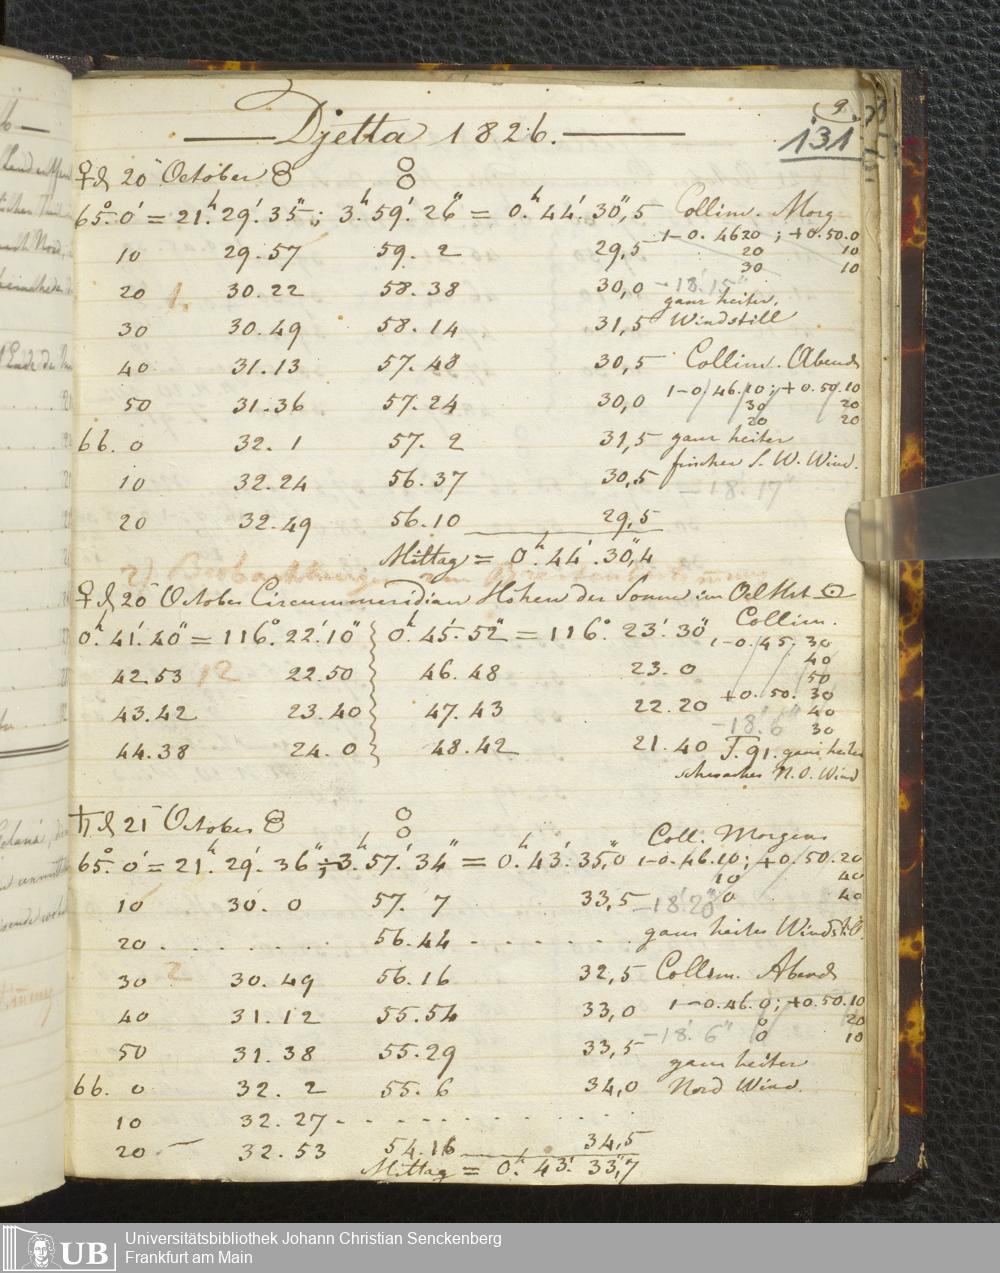 (9
131
Djetta 1826.
♀ d 20 October
65°.0' = 21h.29'.35"; 3h.59'.26" = 0h.44'.30",5 Collim. Morg
10 29.57 59.2 29,5 1-0.4620; +0.50.0
20 10
30 10
20 1. 30.22 58.38 30,0 -18'.15"
ganz heiter,
30 30.49 58.14 31,5 Windstill
40 31.13 57.48 30,5 Collim. Abends
50 31.36 57.24 30,0 1-0.46.10; +0.50.10
30 20
20 20
66.0 32.1 57.2 31,5 ganz heiter
10 32.24 56.37 30,5 frischer S.W. Wind.
-18'.17"
20 32.49 56.10 29,5
Mittag = 0h.44'.30",4
2) Beobachtungen zum
♀ d 20 October Circummeridian Höhen der Sonne im Oel Hrt ⊙
0h.41'.40" = 116°.22'.10" 0h.45'.52" = 116°.23'.30" Collim.
1-0.45.30
40
50
42.53 12 22.50 46.48 23.0
+0.50.30
40
30
43.42 23.40 47.43 22.20 -18'.6"
44.38 24.0 48.42 21.40 T.91. ganz heiter
schwacher N.O. Wind
♄ d 21 October
65°.0' = 21h.29'.36" ; 3h.57'.34" = 0h.43'.35",0 Coll. Morgens
1-0.46.10; +0.50.20
10 40
0 40
10 30.0 57.7 33,5 -18'20"
20 . . . . . 56.44 - . . . . . ganz heiter Windstill.
30 2 30.49 56.16 32,5 Collim. Abends
40 31.12 55.54 33,0 1-0.46.0; +0.50.10
0 20
0 10
50 31.38 55.29 33,5 -18'.6"
ganz heiter
66.0 32.2 55.6 34,0 Nord Wind.
10 32.27 - . . . . . .
20 32.53 54.16 34,5
Mittag = 0h.43'.33",7
UB
Universitätsbibliothek Johann Christian Senckenberg
Frankfurt am Main